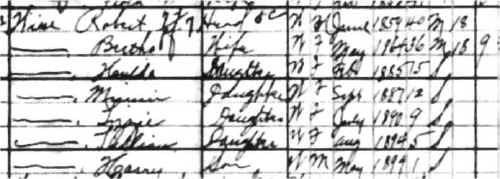 Robert Head W June 1859 40 M 18
Bertha Wife W F May 1864 36 M 18 9
Hulda Daughter W F Feb 1885 15 S
Miriam Daughter W F Sept 1887 12 S
Daughter W F July 1890 9 S
Lillian Daughter W F Aug 1894 5 S
Harry Son W M May 1899 1 S